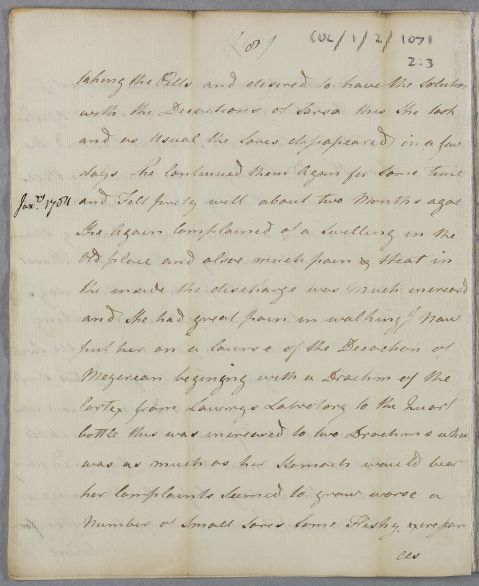 (8)
CUL/1/2/1071
2.3
taking the Pills and desired to have the Solution
with the Decoctions of Sarsa this She took
and as Usual the Sores disapeared in a few
days She continued them Again for Some time
Janry. 1764
and Felt prety well about two Months agoe
She Again Complained of a Swelling in the
Old place and alsoe much pain & Heat in
the inside the discharge was Much increasd
and She had great pain in walking I Now
put her on a Course of the Decoction of
Mezerean begining with a Drachm of the
Cortex from Labvotory to the Quart
bottle this was increased to two Drachms which
was as much as her Stomach would bear
her Complaints Seemed to grow worse a
Number of Small Sores Some Fleshy
ces